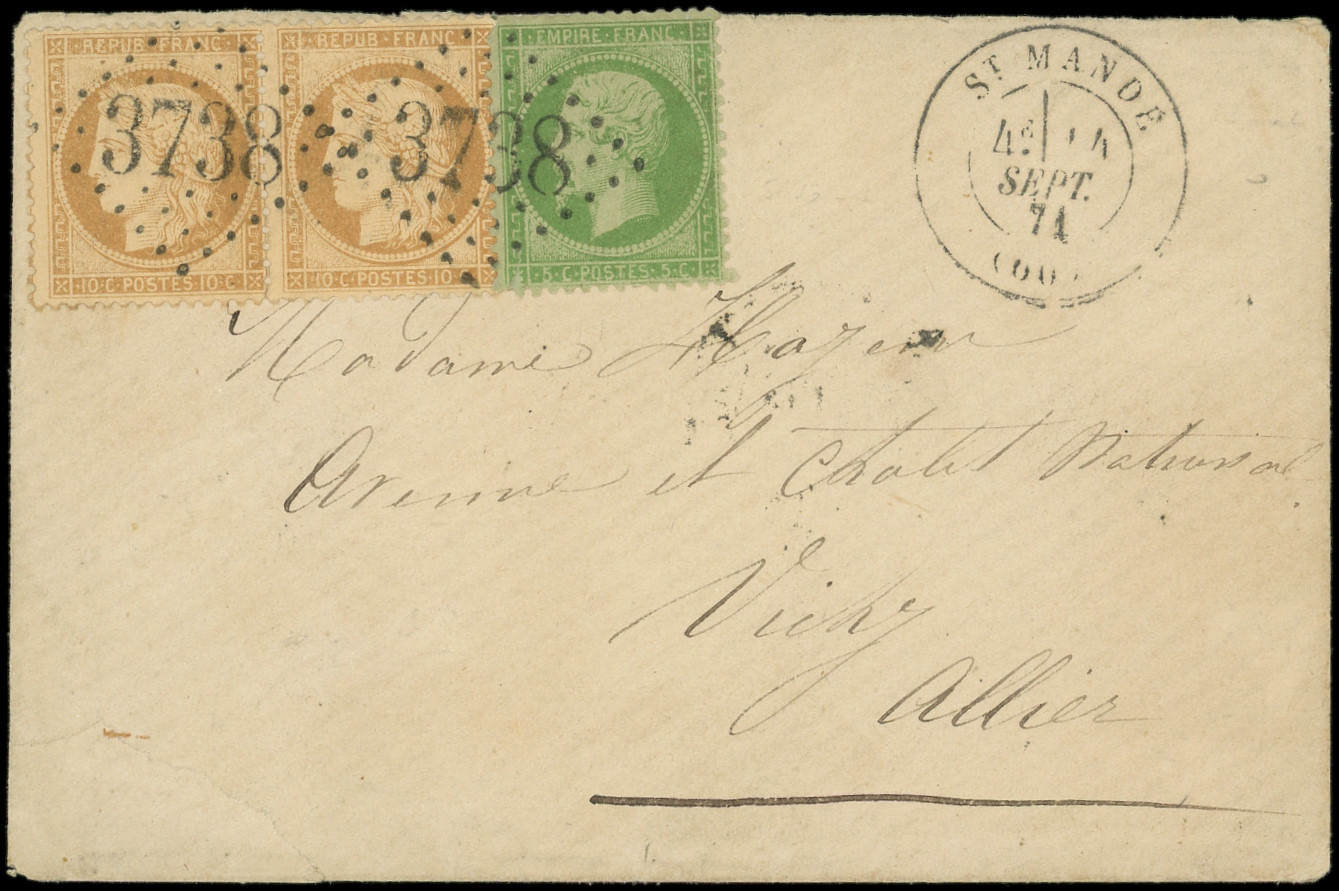 REPUB·FRANC
10·C·POSTES·10·C
REPUB·FRANC
10·C·POSTES·10·C
EMPIRE·FRANC
5·C·POSTES·5·C
3738
3738
ST MANDÉ
4E
SEPT.
71
(60)
Madame
Avenue et Chalet National
Vichy
Allier